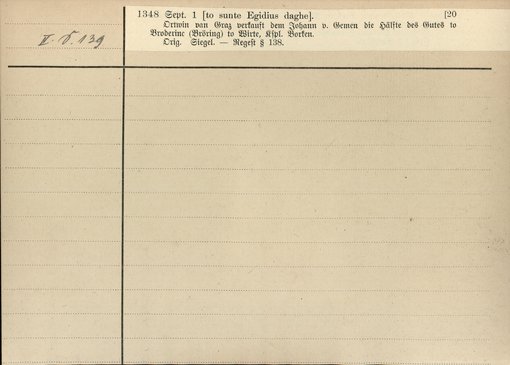 1348 Sept. 1 [to sunte Egidius daghe]. [20
Ortwin van Graz verkauft dem Johann v. Gemen die Hälfte des Gutes to
Broderinc (Bröring) to Wirte, Kspl. Borken.
Orig. Siegel. — Regest § 138.
139